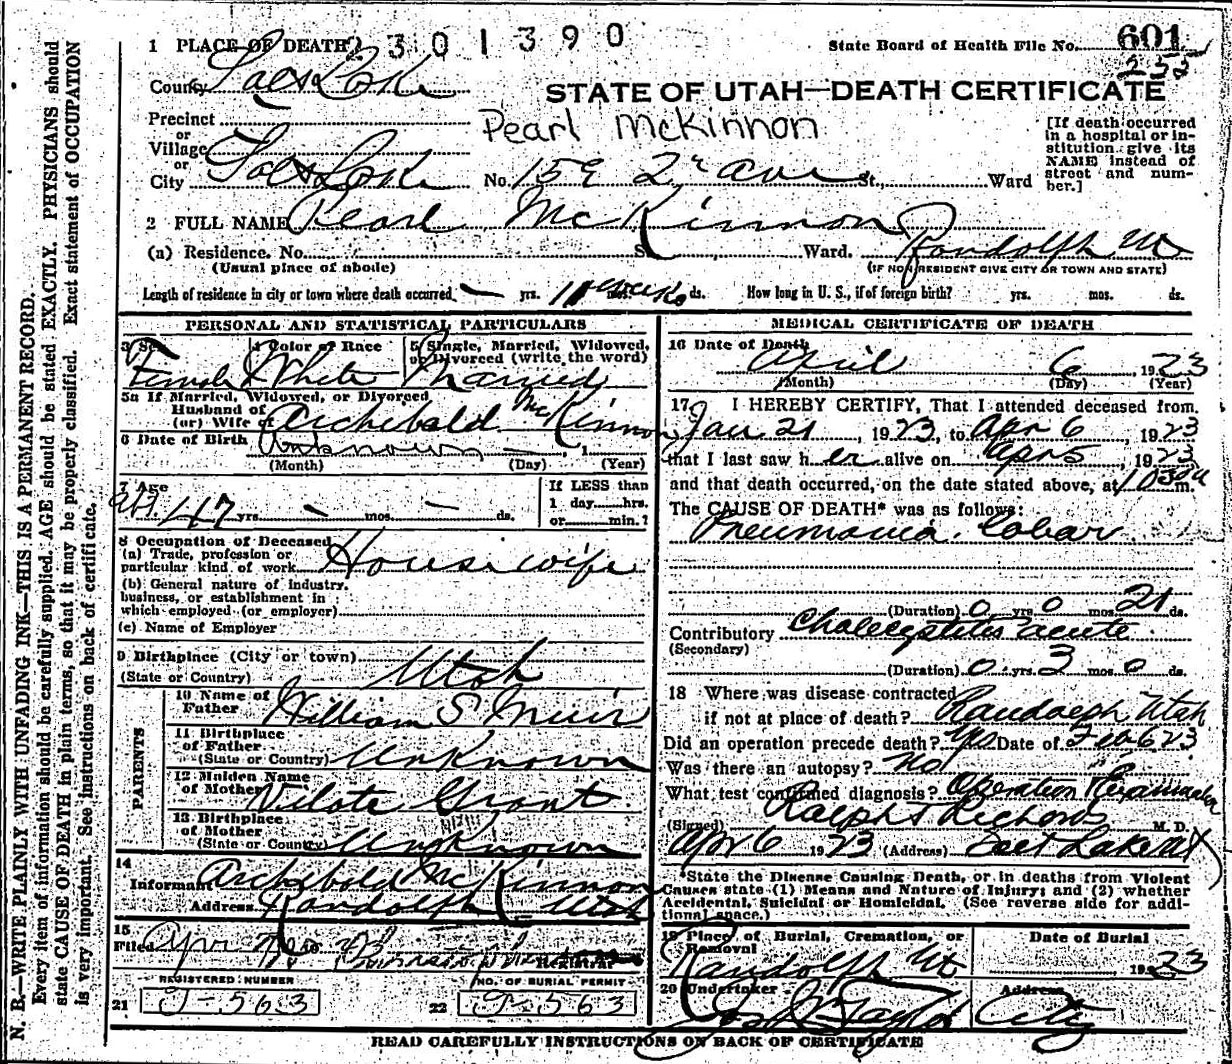 2301390
1 PLACE OF DEATH
State Board of Health File No. 601
255
County Salt Lake
STATE OF UTAH—DEATH CERTIFICATE
Precinct
or
Pearl McKinnon
Village
or
City Salt Lake No. 159 2nd ave St., Ward
[If death occurred
in a hospital or in-
stitution give its
NAME instead of
street and num-
ber.]
2 FULL NAME Pearl McKinnon
(a) Residence. No. St. Ward. Randolph Ut
(Usual place of abode)
(IF NON RESIDENT GIVE CITY OR TOWN AND STATE)
Length of residence in city or town where death occurred — yrs. mos. ds. How long in U. S., if of foreign birth? yrs. mos. ds.
PERSONAL AND STATISTICAL PARTICULARS
3 Sex 4 Color or Race 5 Single, Married, Widowed,
or Divorced (write the word)
Female White Married
5a If Married, Widowed, or Divorced
Husband of
(or) Wife of Archibald McKinnon
6 Date of Birth Unknown — , 1
(Month) (Day) (Year)
7 Age If LESS than
abt. 47 yrs. — mos. — ds. 1 day hrs.
or min.?
8 Occupation of Deceased
(a) Trade, profession or
particular kind of work Housewife
(b) General nature of industry,
business, or establishment in
which employed (or employer)
(c) Name of Employer
9 Birthplace (City or town)
(State or Country) Utah
PARENTS
10 Name of
Father William S Muir
11 Birthplace
of Father
(State or Country) Unknown
12 Maiden Name
of Mother Vilate Grant
13 Birthplace
of Mother
(State or Country) Unknown
14
Informant Archibald McKinnon
Address Randolph Utah
15
Filed Apr
Registrar
REGISTERED NUMBER NO. OF BURIAL PERMIT
21 J-563 22 J-563
MEDICAL CERTIFICATE OF DEATH
16 Date of Death
April 6 1923
(Month) (Day) (Year)
17 I HEREBY CERTIFY, That I attended deceased from
Jan 21, 1923, to Apr 6, 1923
that I last saw her alive on Apr 5, 1923
and that death occurred, on the date stated above, at 1030a m.
The CAUSE OF DEATH* was as follows:
Pneumonia. Lobar
(Duration) 0 yrs. 0 mos. 21 ds.
Contributory Cholecystitis acute
(Secondary)
(Duration) 0 yrs. 3 mos. 0 ds.
18 Where was disease contracted
if not at place of death? Randolph Utah
Did an operation precede death? Yes Date of Feb 6 23
Was there an autopsy? No
What test confirmed diagnosis? Operation
(Signed) Ralph T Richards M. D.
Apr 6 1923 (Address) Salt Lake Ut
*State the Disease Causing Death, or in deaths from Violent
Causes state (1) Means and Nature of Injury; and (2) whether
Accidental, Suicidal or Homicidal. (See reverse side for addi-
tional space.)
19 Place of Burial, Cremation, or
Removal
Date of Burial
Randolph Ut 1923
20 Undertaker Address
Taylor City
READ CAREFULLY INSTRUCTIONS ON BACK OF CERTIFICATE
N. B.—WRITE PLAINLY WITH UNFADING INK—THIS IS A PERMANENT RECORD.
Every item of information should be carefully supplied. AGE should be stated EXACTLY. PHYSICIANS should
state CAUSE OF DEATH in plain terms, so that it may be properly classified. Exact statement of OCCUPATION
is very important. See instructions on back of certificate.